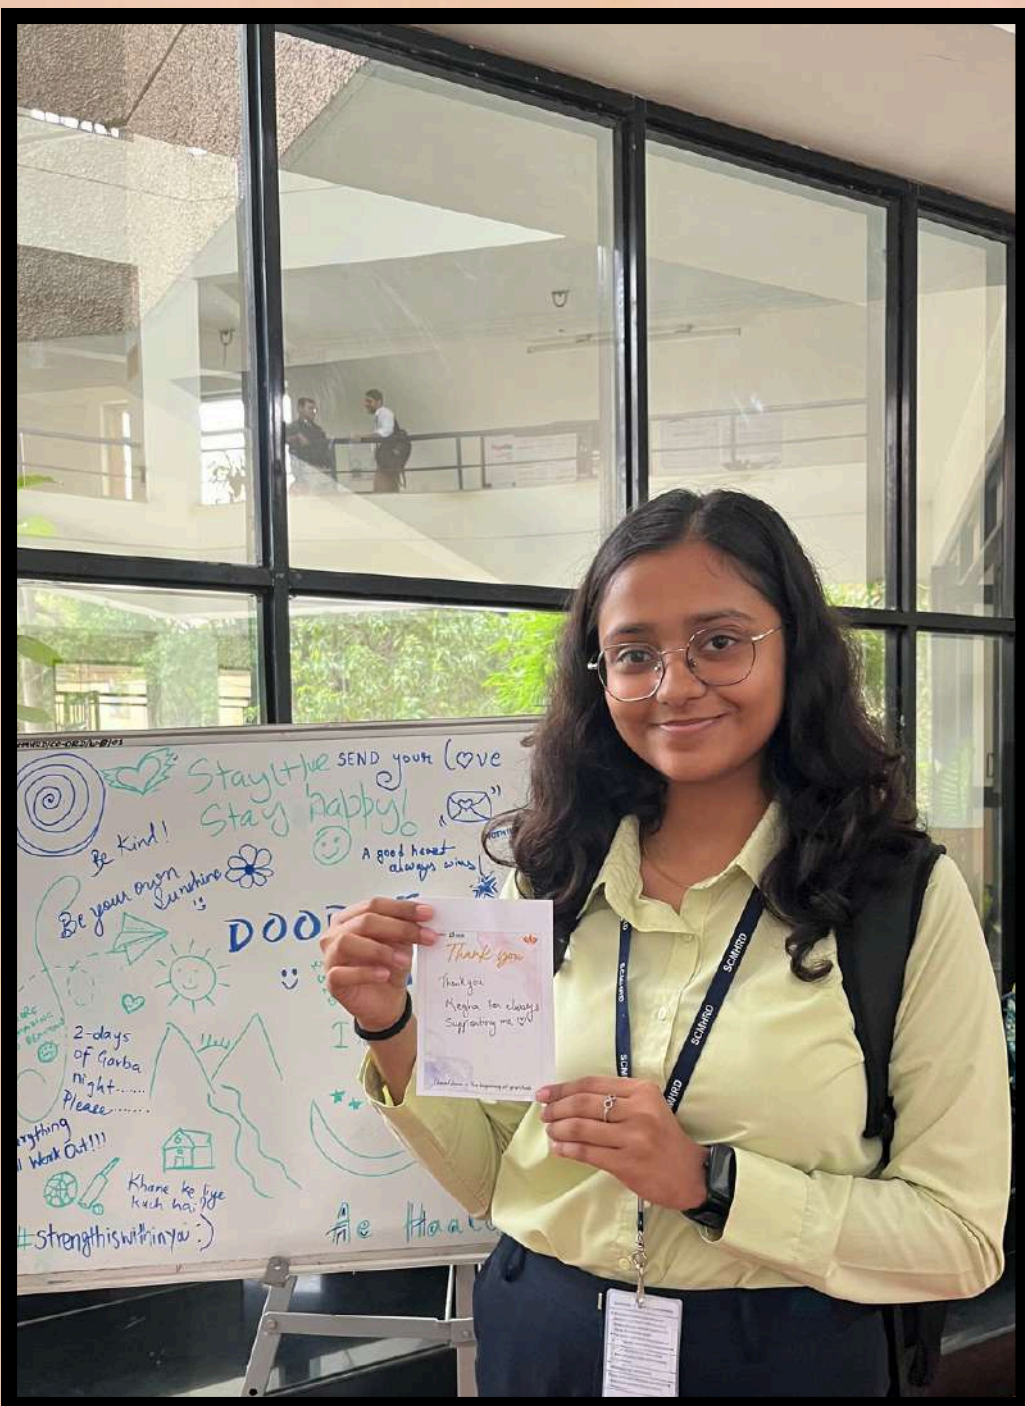 Stay
SEND your Love
Stay happy!
Be Kind!
A good heart
always wins!
Be your own
Sunshine
DOO
2-days
of Garba
night......
Please.......
Work Out!!!
Khane ke liye
kuch hai?
#strengthiswithinyou :)
Thank you
Thankyou
Megha for always
Supporting me
the beginning of gratitude
SCMHRD
SCMHRD
SCMHRD